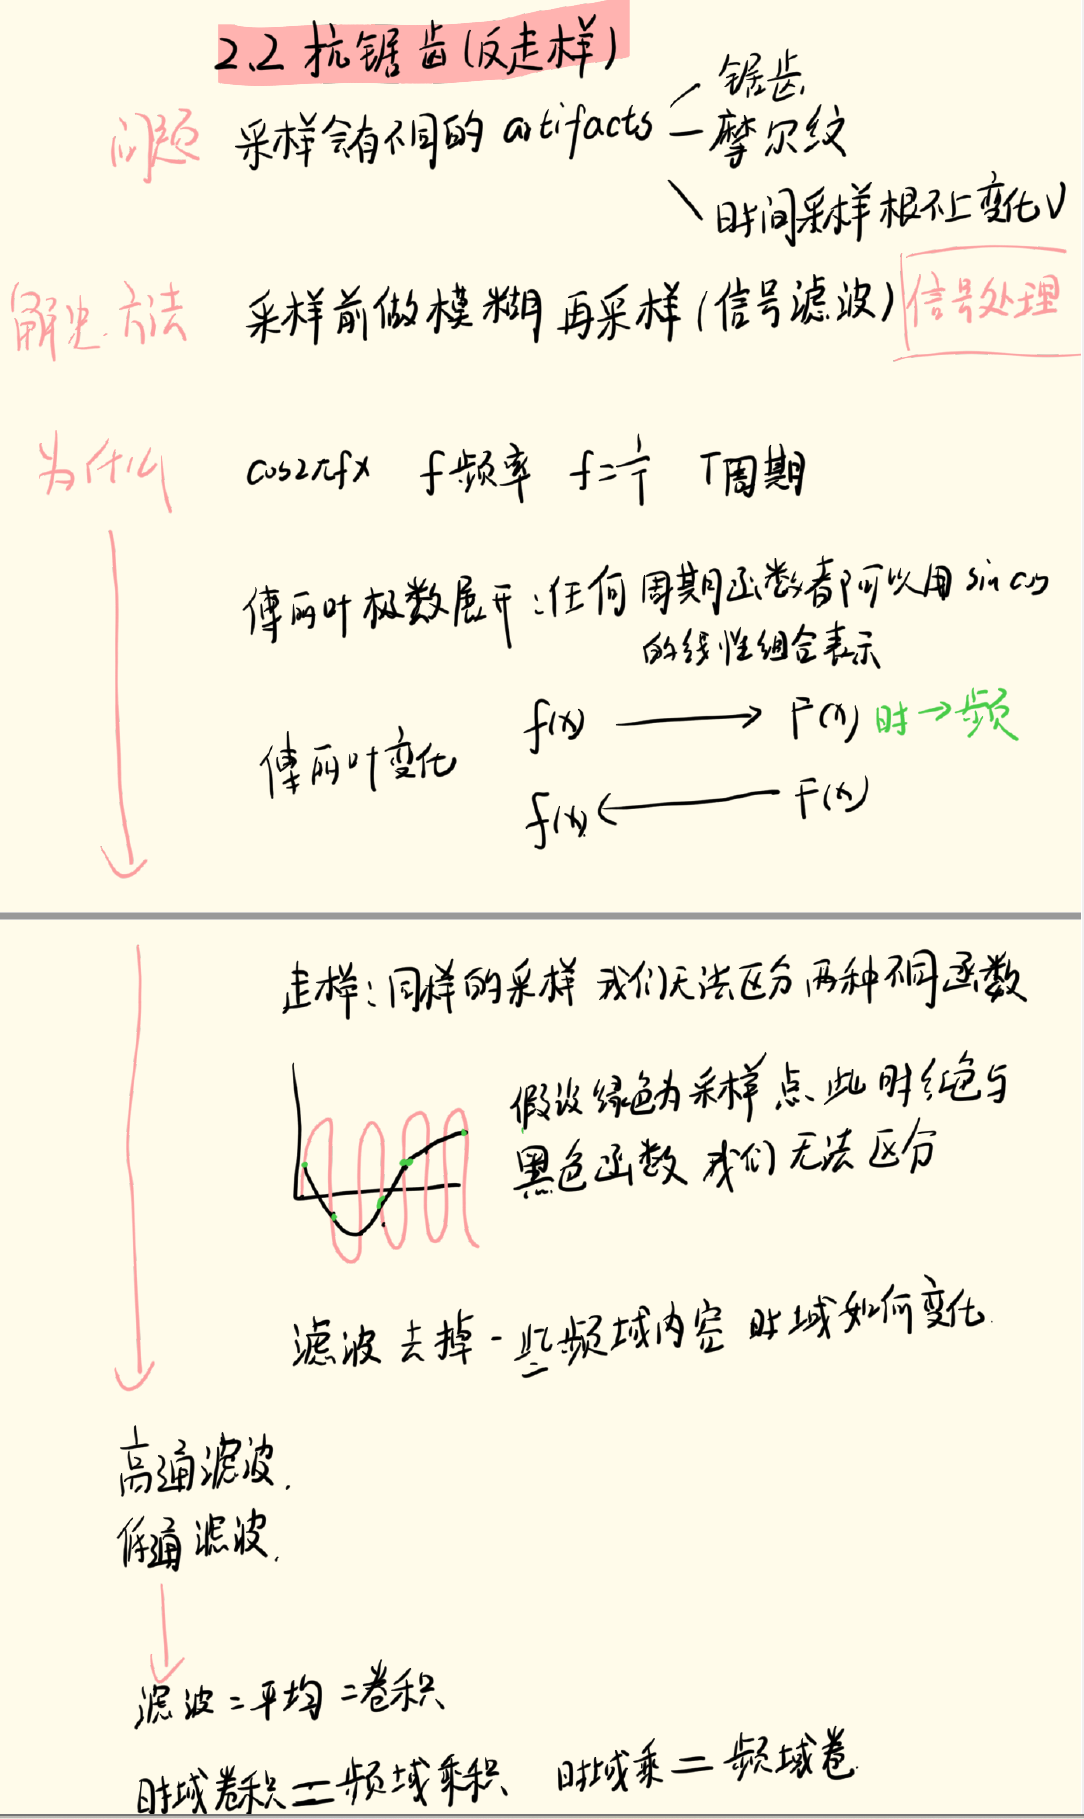 2.2 抗锯齿(反走样)
问题 采样会有不同的 artifacts
锯齿
摩尔纹
时间采样 根不上变化 V
解决方法 采样前做模糊 再采样 (信号滤波) 信号处理
为什么 cos2πfx f 频率 f=1/T T周期
傅丽叶极数展开:任何周期函数都可以用 sin cos
的线性组合表示
f(x) → F(x) 时→频
傅丽叶变化
f(x) ← F(x)
走样:同样的采样 我们无法区分两种不同函数
假设绿色为采样点 此时红色与
黑色函数 我们无法区分
滤波 去掉一些频域内容 时域如何变化.
高通滤波.
低通滤波.
滤波=平均=卷积
时域卷积=频域乘积 时域乘=频域卷